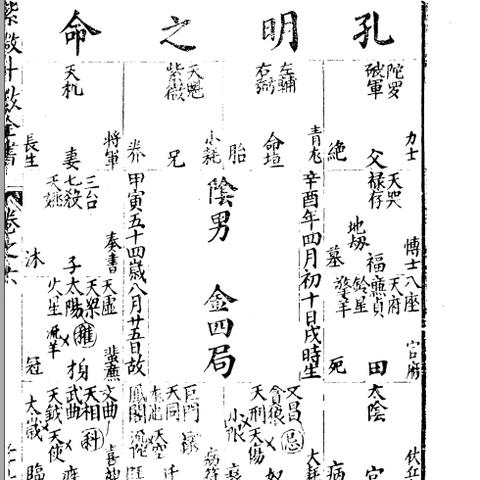 孔明之命
紫微斗数全書
卷之六
陀罗
破軍
力士
父
絶
左輔
右弼
青龙
命垣
胎
天魁
紫微
小耗
兄
养
天机
將軍
妻
長生
天哭
禄存
地刼
博士
福
墓
辛酉年四月初十日戌時生
陰男 金四局
甲寅五十四歲八月廿五日故
三台
七殺
天姚
奏書
子
沐
八座
天府
廉貞
鈴星
擎羊
官府
田
死
天虛
天梁
太陽
火星
權
蜚廉
冠
太陰
伏兵
病
文昌
貪狼
天刑
天傷
忌
大耗
巨門
天同
天空
禄
病符
鳳閣
文曲
天相
武曲
天鉞
天使
科
喜神
太歲
臨